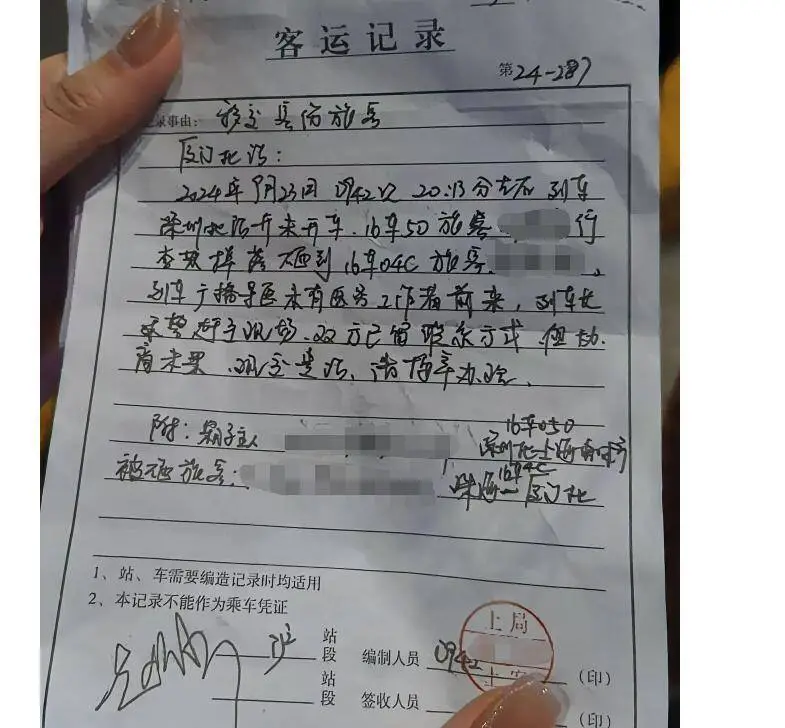 客运记录
第24-287
记录事由：移交受伤旅客
厦门北站：
2024年9月23日 D942次 20:13分左右 列车
深圳北站开来开车，16车5D 旅客 行
李架掉落砸到16车04C 旅客 。
列车广播寻医未有医务工作者前来，列车长
赶于现场，双方已留联系方式，但协
商未果，现交贵站，请按章办理。
附：箱子主人
16车05D
深圳北-上海南
被砸旅客：
16车4C
珠海-厦门北
1、站、车需要编造记录时均适用
2、本记录不能作为乘车凭证
站
段
编制人员 D942 （印）
站
段
签收人员 （印）
上局